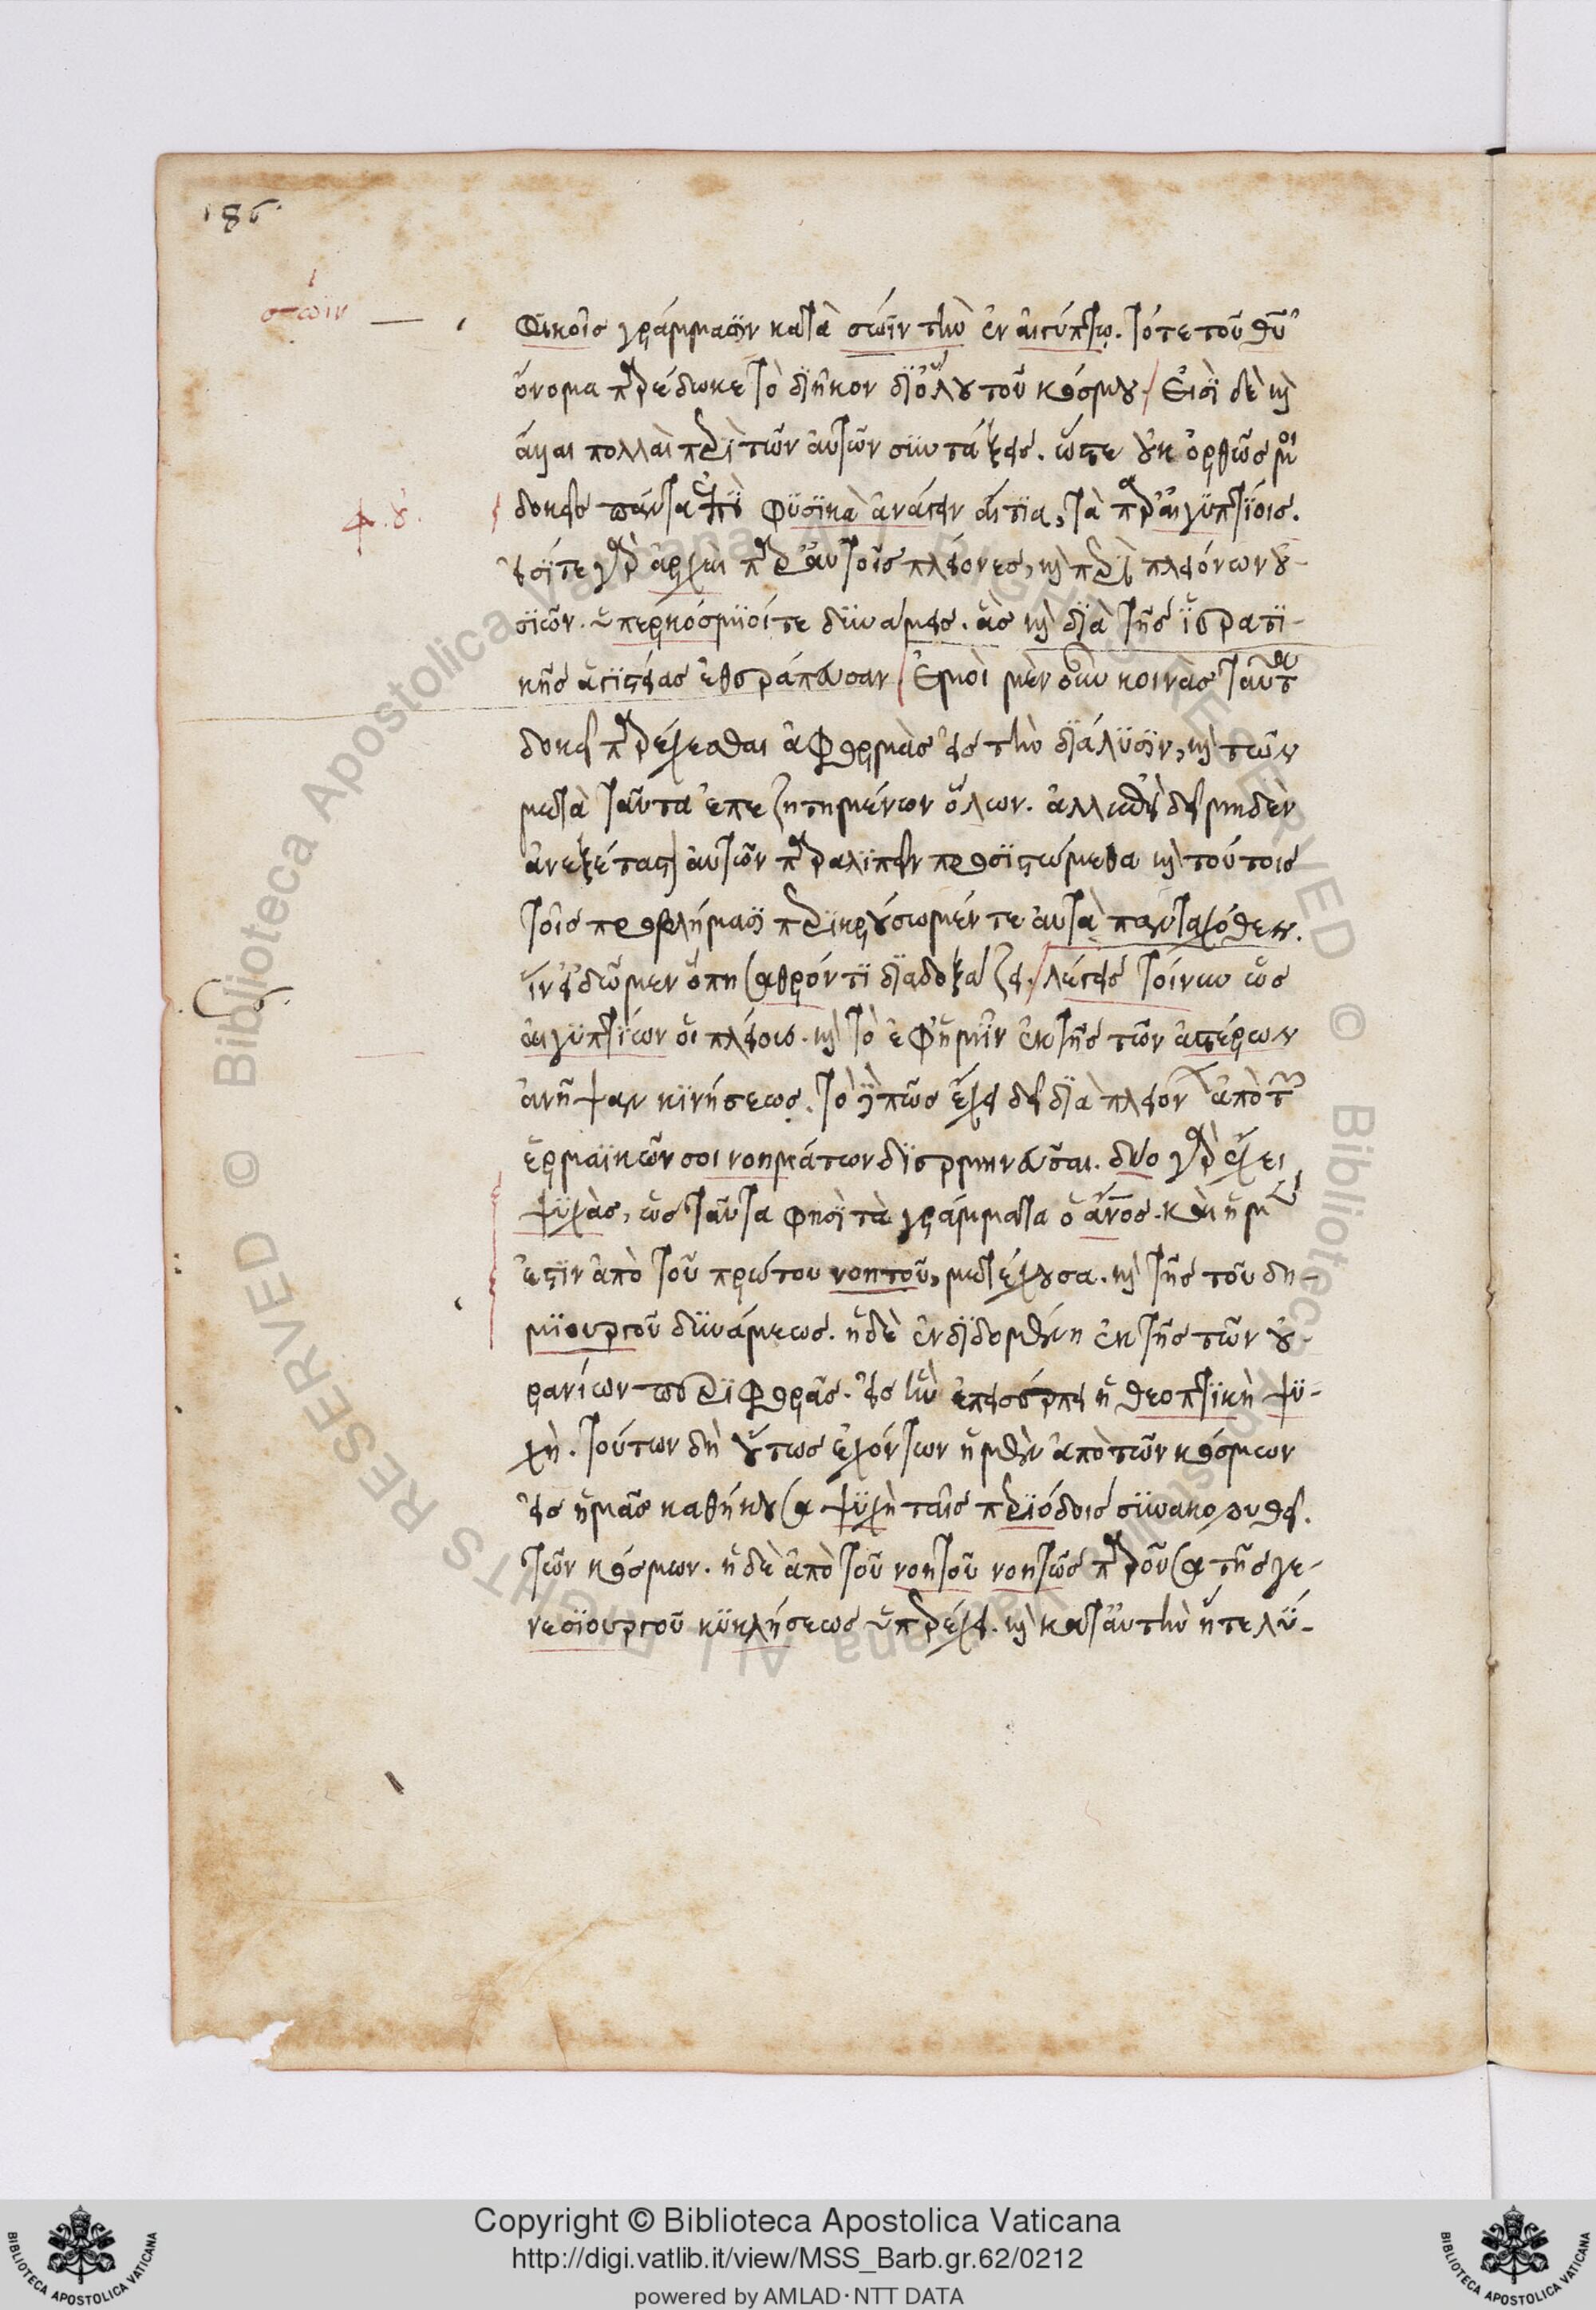 186
σάϊν
φικοῖς γράμμασιν κατὰ σάϊν τὴν ἐν αἰγύπτῳ. τότε τοῦ θυ
ὄνομα παρέδωκε τὸ διῆκον δι' ὅλου τοῦ κόσμου. Εἰσὶ δὲ καὶ
ἄλλαι πολλαὶ περὶ τῶν αὐτῶν συντάξεις. ὥστε οὐκ ὀρθῶς μοι
δοκεῖς πάντα ἐπὶ φυσικὰ ἀνάγειν αἴτια, τὰ παρ' αἰγυπτίοις.
εἰσί τε γὰρ ἀρχαὶ παρ' αὐτοῖς πλείονες, καὶ περὶ πλειόνων οὐ-
σιῶν. ὑπερκόσμιοί τε δυνάμεις. ἃς καὶ διὰ τῆς ἱερατι-
κῆς ἁγιστείας ἐθεράπευσαν Ἐμοὶ μὲν οὖν κοινὰς ταῦτα
δοκεῖ παρέχεσθαι ἀφορμὰς εἰς τὴν διάλυσιν, καὶ τῶν
μετὰ ταῦτα ἐπεζητημένων ὅλων. ἀλλ' ἐπεὶ δεῖ μηδὲν
ἀνεξέταστον αὐτῶν παραλιπεῖν προσιστώμεθα καὶ τούτοις
τοῖς προβλήμασι περικρούσωμέν τε αὐτὰ πανταχόθεν.
ἵν' εἰδῶμεν ὅπη σαθρόν τι διαδοξάζει. λέγεις τοίνυν ὡς
αἰγυπτίων οἱ πλείους. καὶ τὸ ἐφ' ἡμῖν ἐκ τῆς τῶν ἀστέρων
ἀνῆψαν κινήσεως. τὸ δὲ πῶς ἔχει δεῖ διὰ πλειόνων ἀπὸ τῶν
ἑρμαϊκῶν σοι νοημάτων διερμηνεῦσαι. δύο γὰρ ἔχει
ψυχὰς, ὡς ταῦτα φησὶ τὰ γράμματα ὁ ἄνος. καὶ ἡ μέν
ἐστιν ἀπὸ τοῦ πρώτου νοητοῦ, μετέχουσα. καὶ τῆς τοῦ δη-
μιουργοῦ δυνάμεως. ἡ δὲ ἐνδιδομένη ἐκ τῆς τῶν οὐ-
ρανίων περιφορᾶς. εἰς ἣν ἐπεισέρπει ἡ θεοπτικὴ ψυ-
χὴ. τούτων δὴ οὕτως ἐχόντων ἡ μὲν ἀπὸ τῶν κόσμων
εἰς ἡμᾶς καθήκουσα ψυχὴ ταῖς περιόδοις συνακολουθεῖ.
τῶν κόσμων. ἡ δὲ ἀπὸ τοῦ νοητοῦ νοητῶς παροῦσα τῆς γε-
νεσιουργοῦ κυκλήσεως ὑπερέχει. καὶ κατ' αὐτὴν ἥ τε λύ-
Copyright © Biblioteca Apostolica Vaticana
http://digi.vatlib.it/view/MSS_Barb.gr.62/0212
powered by AMLAD·NTT DATA